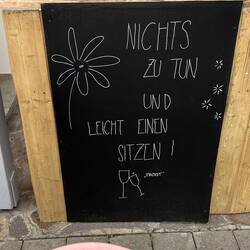 NICHTS
ZU TUN
UND
LEICHT EINEN
SITZEN !
"PROST"